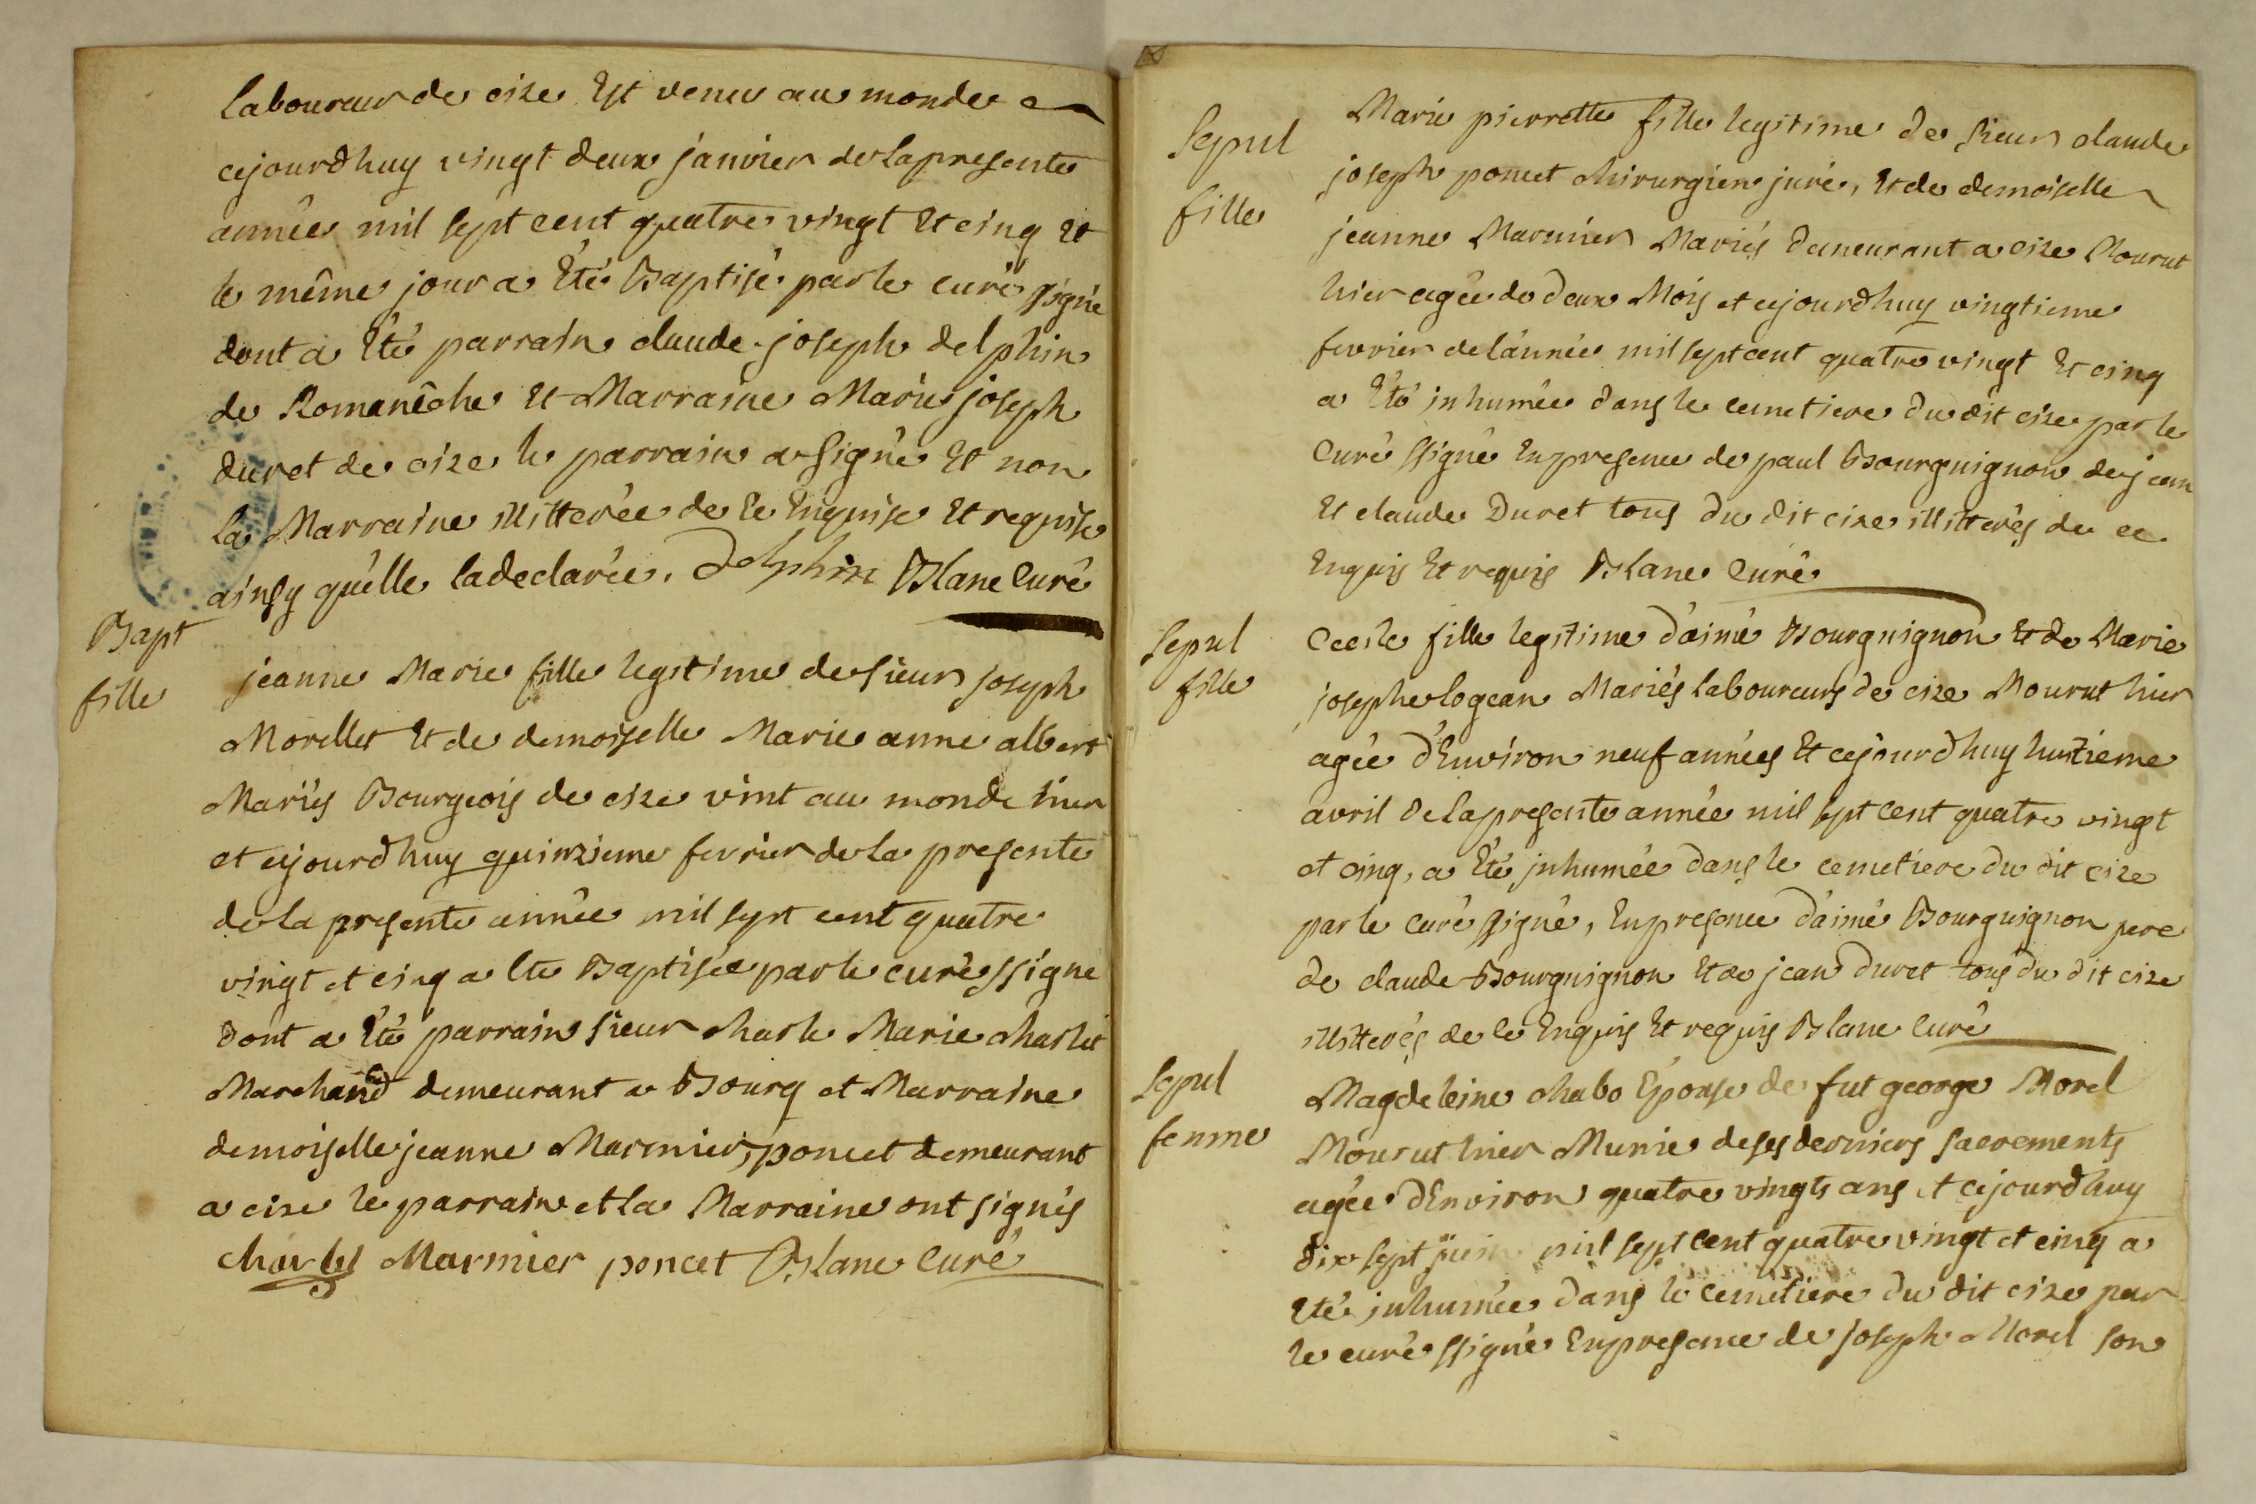 laboureur de cize Est venu au monde
cejourdhuy vingt deux janvier de la presente
année mil sept cent quatre vingt Et cinq Et
le même jour a Été Baptisé par le curé ssigné
dont a Été parrain claude joseph delphin
de Romanêche Et Marraine Marie joseph
duret de cize le parrain a signé Et non
la Marraine illitterée de ce Enquise Et requise
ainsy qu'elle la declarée. Delphin Blanc Curé
Bapt
fille
jeanne Marie fille legitime de sieur joseph
Morellet Et de demoiselle Marie anne albert
Mariés Bourgeois de cize vint au monde hier
et cejourdhuy quinzieme fevrier de la presente
de la presente année mil sept cent quatre
vingt et cinq a Ete Baptisée par le curé ssigne
dont a Été parrain sieur charle Marie charlet
Marchand demeurant a Bourg et Marraine
demoiselle jeanne Marmier, poncet demeurant
a cize le parrain et la Marraine ont signés
charlet Marmier poncet Blanc Curé
Sepul
fille
Marie pierrette fille legitime de sieur claude
joseph poncet chirurgien juré, Et de demoiselle
jeanne Marmier Mariés demeurant a cize Mourut
hier agée de deux Mois et cejourdhuy vingtieme
fevrier de l'année mil sept cent quatre vingt Et cinq
a Été inhumée dans le cemetiere du dit cize par le
Curé ssigné En presence de paul Bourguignon de jean
Et claude Duret tous du dit cize illitterés de ce
Enquis Et requis Blanc Curé
Sepul
fille
Cecile fille legitime d'aimé Bourguignon Et de Marie
josephe logean Mariés laboureurs de cize Mourut hier
agée d'Environ neuf années Et cejourdhuy huitieme
avril de la presente année mil sept Cent quatre vingt
et cinq, a Été inhumée dans le cemetiere du dit cize
par le curé ssigné, En presence d'aimé Bourguignon pere
de claude Bourguignon Et de jean duret tous du dit cize
illitterés de ce Enquis Et requis Blanc Curé
Sepul
femme
Magdeleine chabo Epouse de fut george Morel
Mourut hier Munie de ses derniers sacrements
agée d'Environ quatre vingts ans et cejourdhuy
dix sept juin mil sept Cent quatre vingt et cinq a
Eté inhumée dans le Cemetiere du dit cize par
le curé ssigné En presence de joseph Morel son